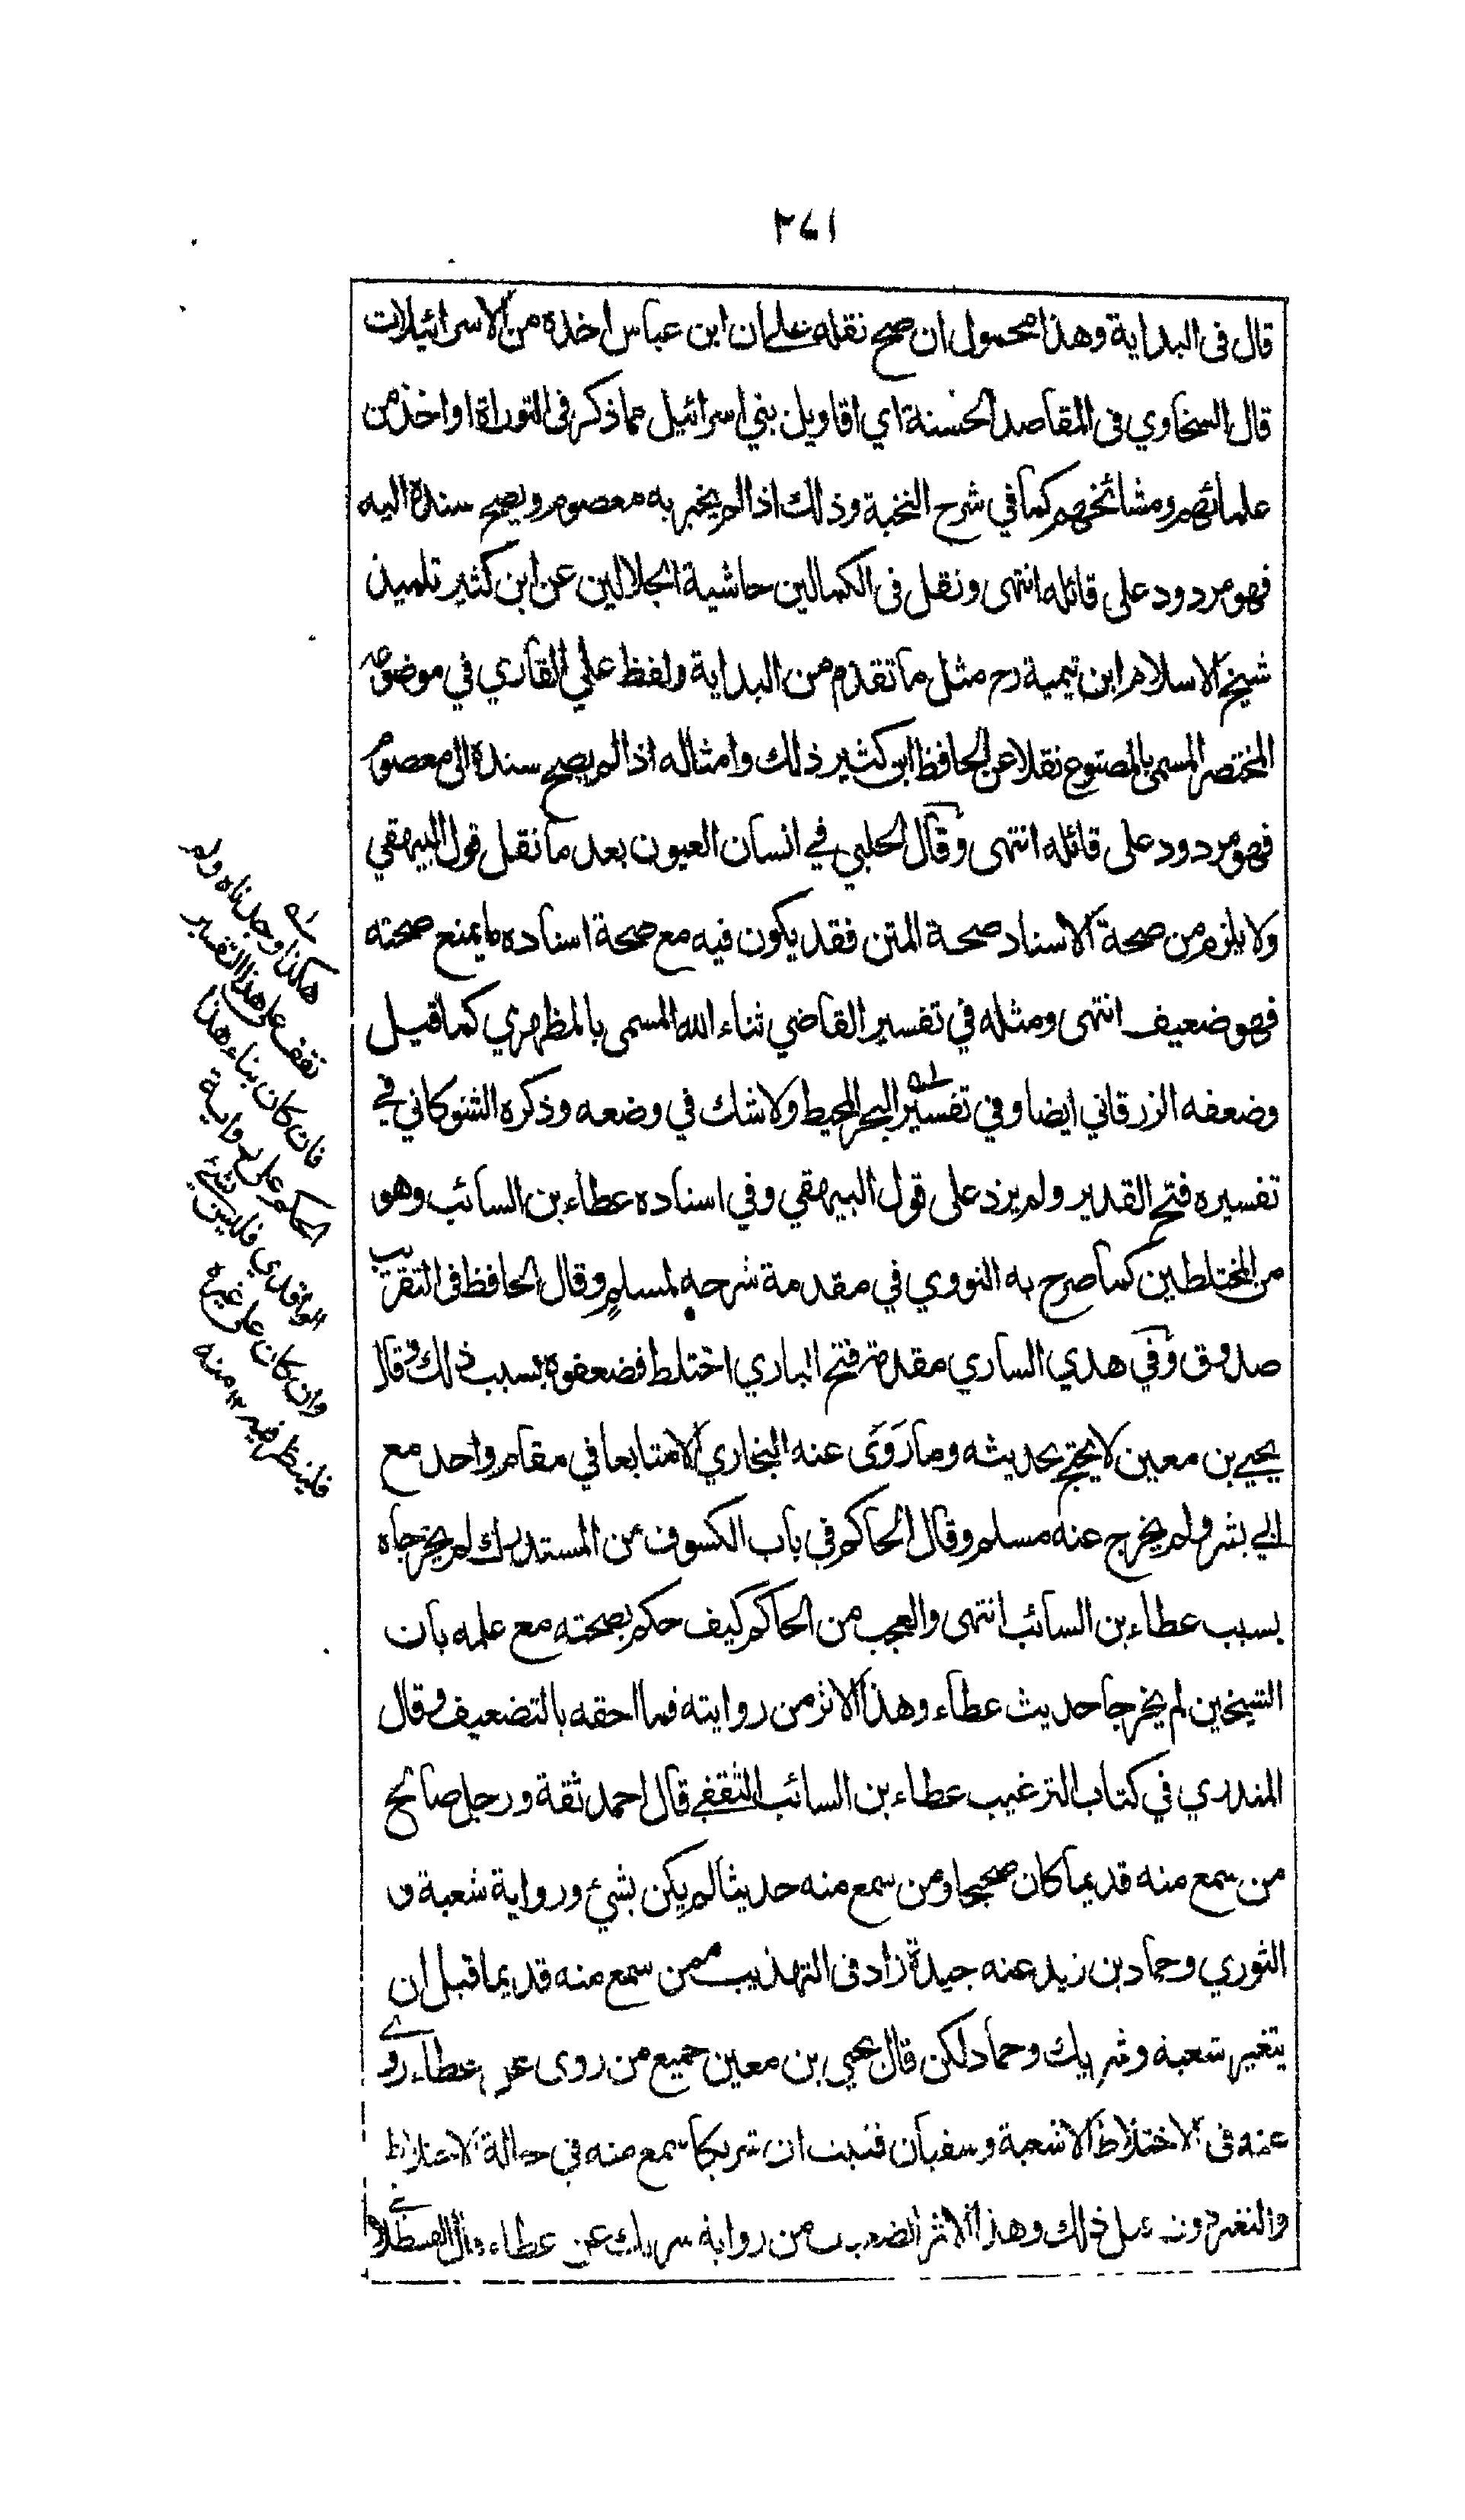 ٢٧١
قال فى البداية وهذا محمول ان صح نقله على ان ابن عباس اخذه من الاسرائيلات
قال السخاوي فى المقاصد الحسنة اي اقاويل بني اسرائيل مما ذكر فى التوراة او اخذ من
علمائهم ومشائخهم كما في شرح النخبة وذلك اذا لم يخبر به معصوم ويصح سنده اليه
فهو مردود على قائله انتهى ونقل فى الكمالين حاشية الجلالين عن ابن كثير تلميذ
شيخ الاسلام ابن تيمية رح مثل ما تقدم من البداية ولفظ علي القاري في موضوعه
المختصر المسمى بالمصنوع نقلا عن الحافظ ابن كثير ذلك وامثاله اذا لم يصح سنده الى معصوم
فهو مردود على قائله انتهى وقال الحلبي في انسان العيون بعد ما نقل قول البيهقي
ولا يلزم من صحة الاسناد صحة المتن فقد يكون فيه مع صحة اسناده ما يمنع صحته
فهو ضعيف انتهى ومثله في تفسير القاضي ثناء الله المسمى بالمظهري كما قيل
وضعفه الزرقاني ايضا وفي تفسير البحر المحيط ولا شك في وضعه وذكره الشوكاني في
تفسيره فتح القدير ولم يزد على قول البيهقي وفي اسناده عطاء بن السائب وهو
من المختلطين كما صرح به النووي في مقدمة شرحه لمسلم وقال الحافظ فى التقريب
صدوق وفي هدي الساري مقدمة فتح الباري اختلط فضعفوه بسبب ذلك وقال
يحيي بن معين لا يحتج بحديثه وما رَوَى عنه البخاري الا متابعا في مقام واحد مع
ابي بشر ولم يخرج عنه مسلم وقال الحاكم في باب الكسوف من المستدرك لم يخرجاه
بسبب عطاء بن السائب انتهى والعجب من الحاكم كيف حكم بصحته مع علمه بان
الشيخين لم يخرجا حديث عطاء وهذا الاثر من روايته فما احقه بالتضعيف وقال
المنذري في كتاب الترغيب عطاء بن السائب الثقفي قال احمد ثقة ورجل صالح
من سمع منه قديما كان صحيحا ومن سمع منه حديثا لم يكن بشيء ورواية شعبة و
الثوري وحماد بن زيد عنه جيدة زاد فى التهذيب ممن سمع منه قديما قبل ان
يتغير شعبة وشريك وحماد لكن قال يحيي بن معين جميع من روى عن عطاء روى
عنه فى الاختلاط الا شعبة وسفيان فثبت ان شريكا سمع منه في حالة الاختلاط
والتغير دون قبل ذلك وهذا الاثر الضعيف من رواية شريك عن عطاء قال القسطلاني
هكذا وجدناه ولم
نقف على هذا التفسير
فان كان بناء هذا
الحكم على رواية
الواقدي فليس بشئ
وان كان على غيره
فلينظر فيه ١٢ منه